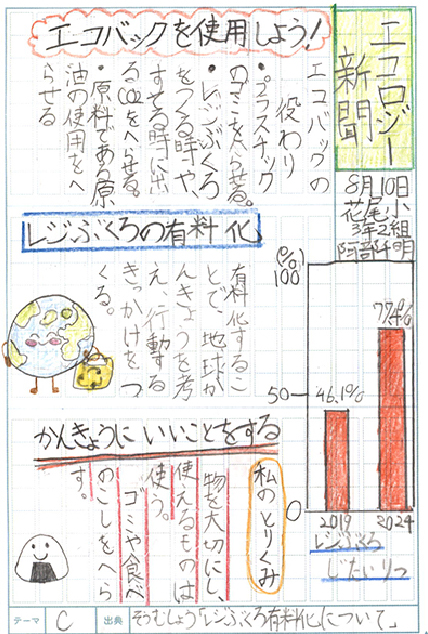 エコロジー
新聞
8月10日
花尾小
3年2組
阿部千明
エコバックを使用しよう!
エコバックの
役わり
・プラスチック
のゴミをへらせる。
・レジぶくろ
をつくる時や、
すてる時に出
るCO2をへらせる。
・原料である原
油の使用をへ
らせる
レジぶくろの有料化
有料化するこ
とで、地球か
んきょうを考
え、行動する
きっかけをつ
くる。
(%)
100
50
0
46.1%
77.4%
2019
2024
レジぶくろ
じたいりつ
かんきょうにいいことをする
私のとりくみ
物を大切にし、
使えるものは
使う。
ゴミや食べ
のこしをへら
す。
テーマ C 出典 そうむしょう「レジぶくろ有料化について」